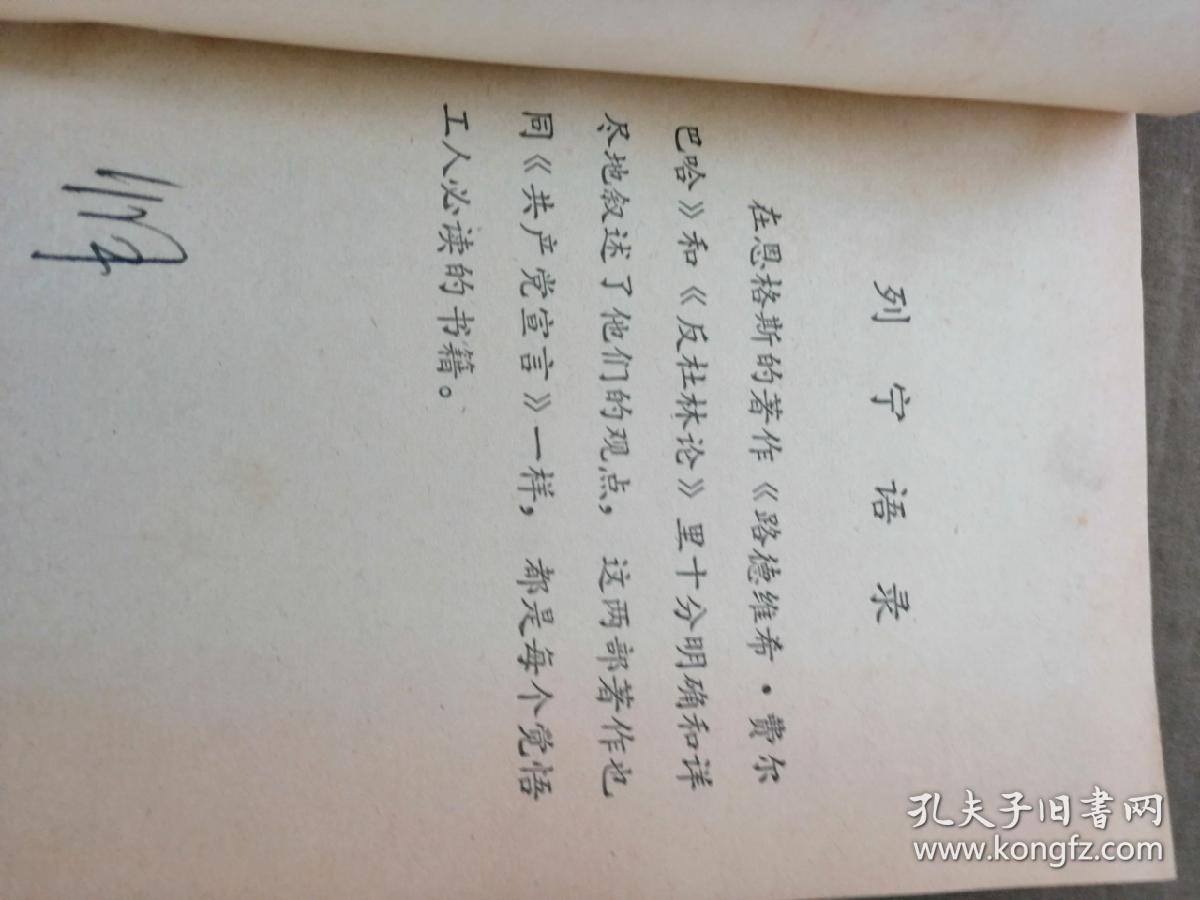 列宁语录
在恩格斯的著作《路德维希·费尔
巴哈》和《反杜林论》里十分明确和详
尽地叙述了他们的观点，这两部著作也
同《共产党宣言》一样，都是每个觉悟
工人必读的书籍。
孔夫子旧书网
www.kongfz.com